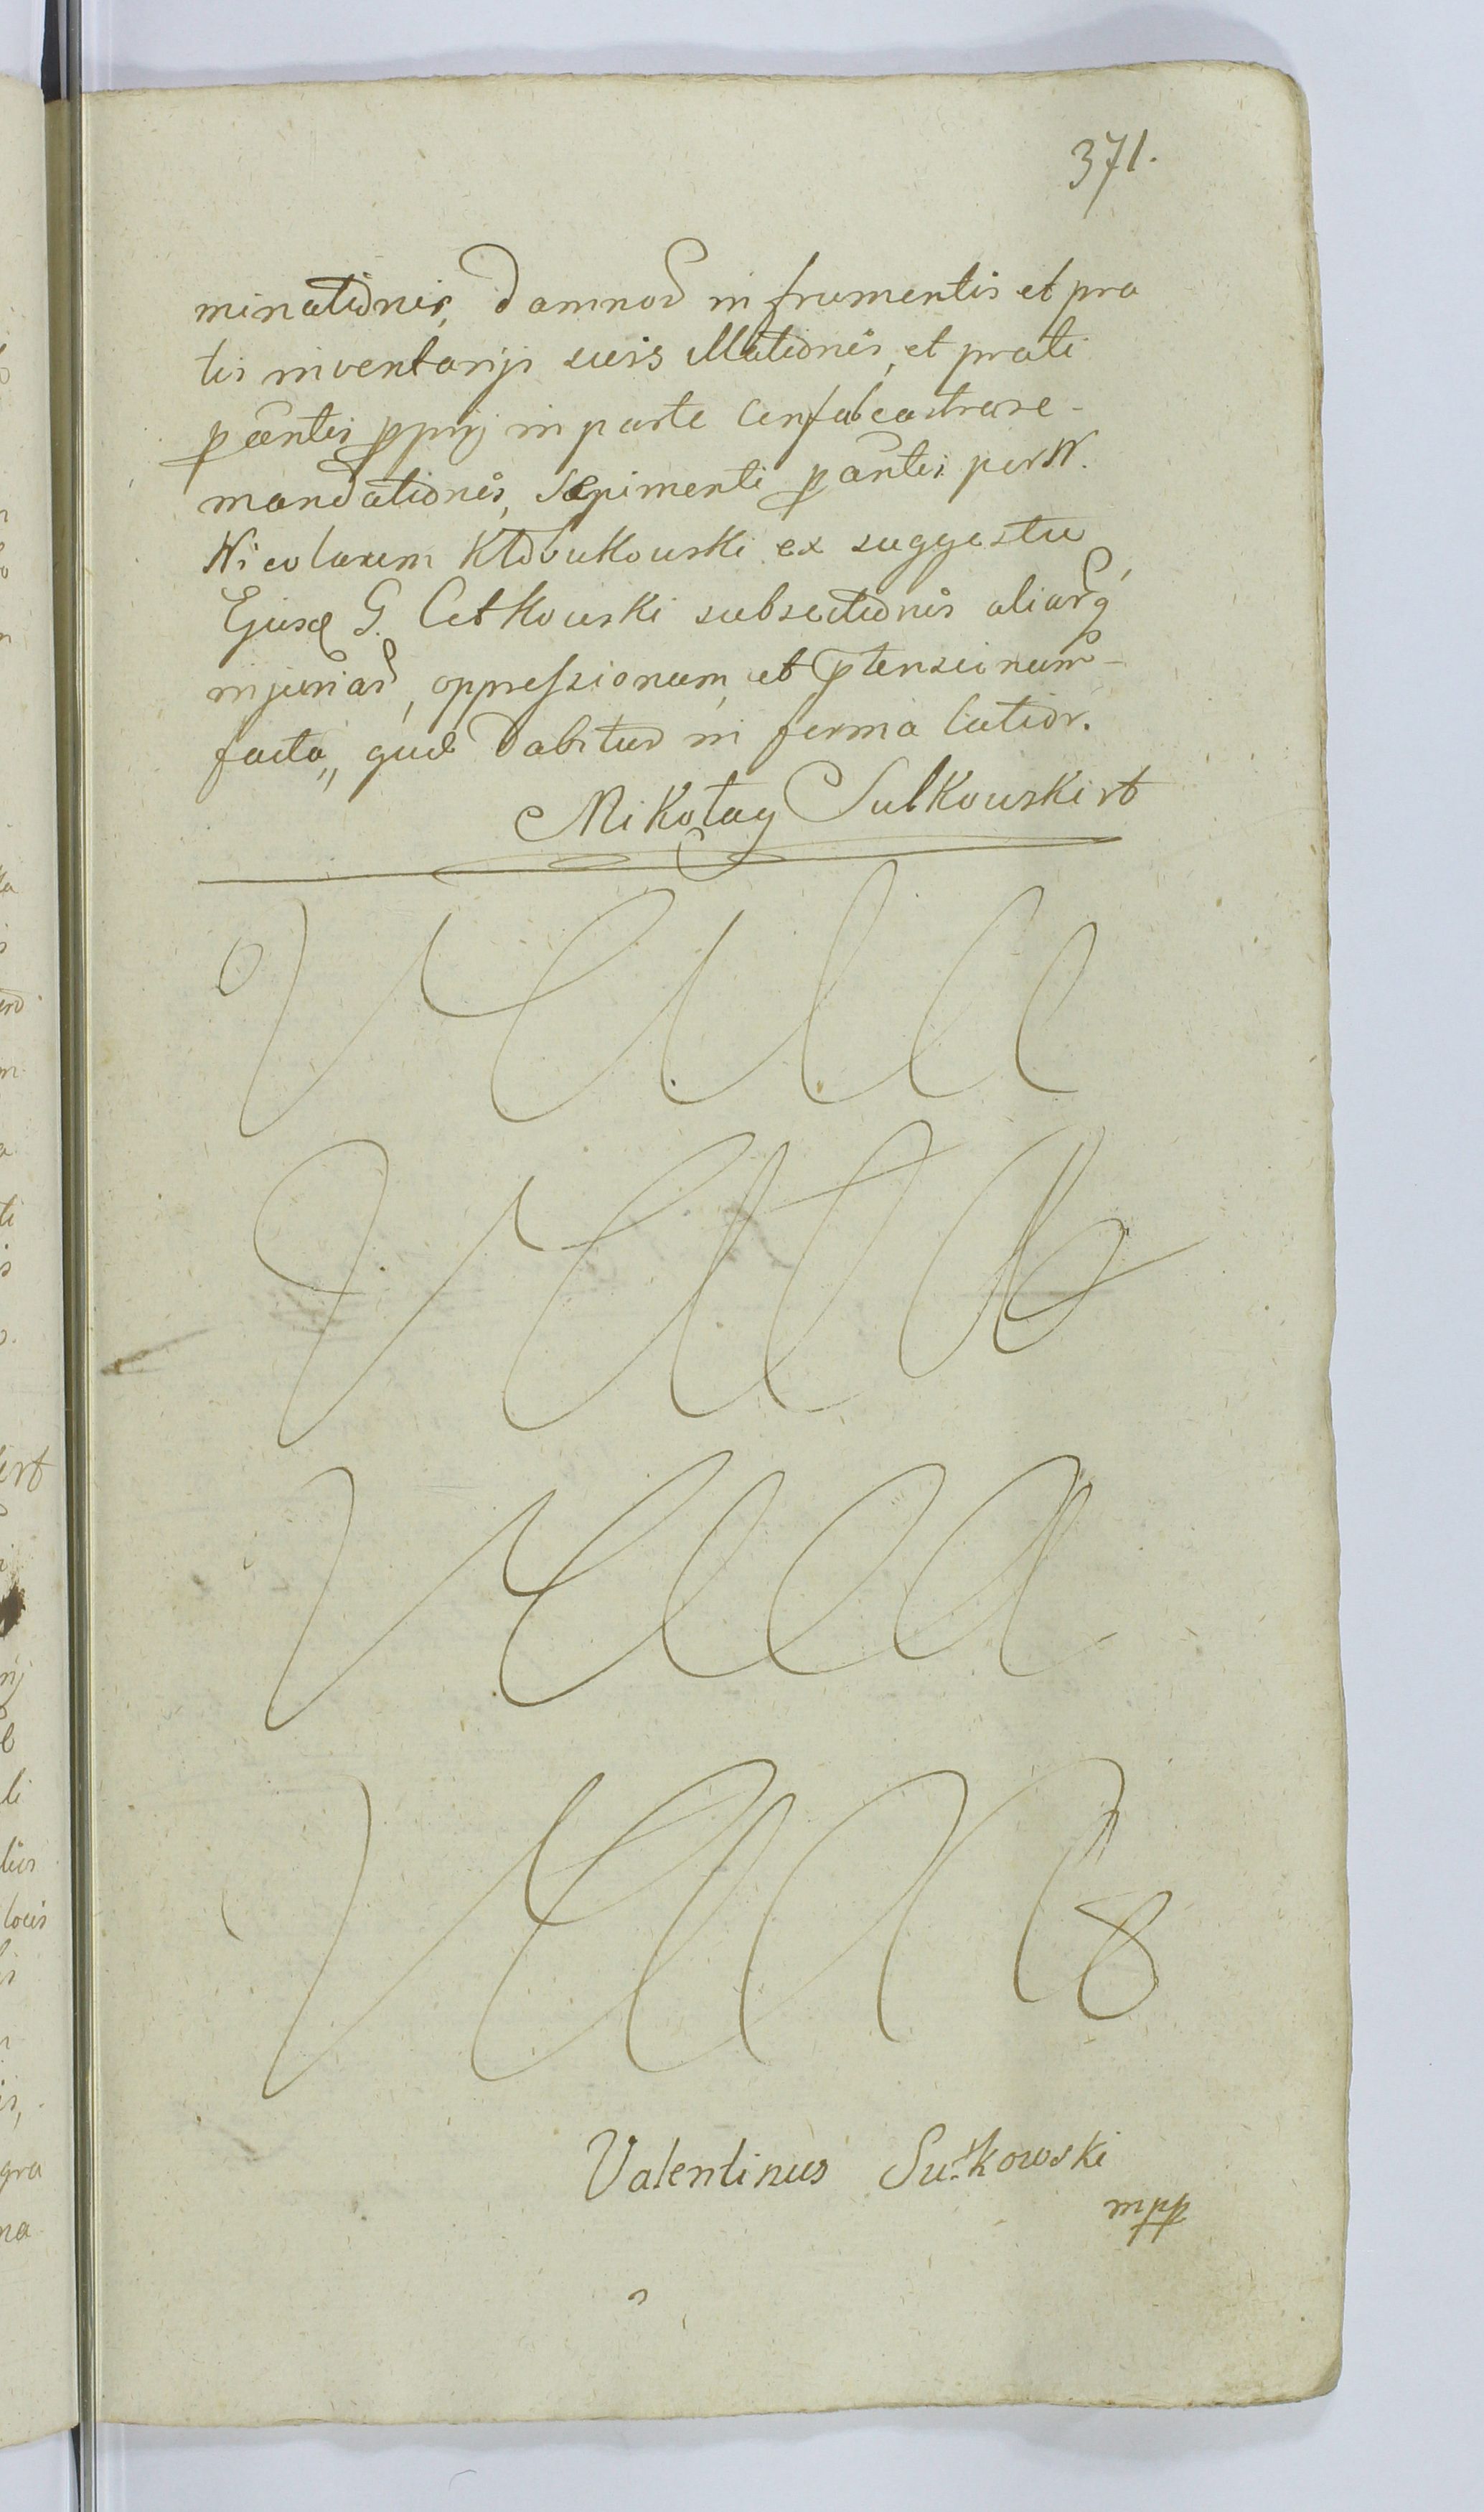 371.
minationis, damnor in frumentis et pra
tis inventarijs suis illationis, et prati
ptantis pprij in parte
mandationis, sepimenti ptantis per N.
Nicolaum Kłobukowski ex suggestu
Ejusd G. Cetkowski subsectionis aliarq
injuriar, oppressionum et ptensionum
facta, que dabitur in forma latior.
Mikołay Sulkowski rt
Valentinus Sułkowski
mpp